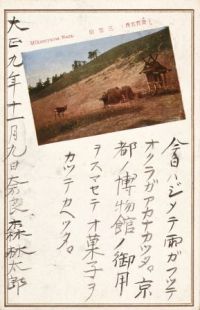 Mikasayama Nara.
三笠山
今日ハジメテ雨ガフツテ
オクラガアカナカツタ。京
都ノ博物館ノ御用
ヲスマセテオ菓子ヲ
カツテカヘツタ。
大正九年十一月九日奈良 森林太郎